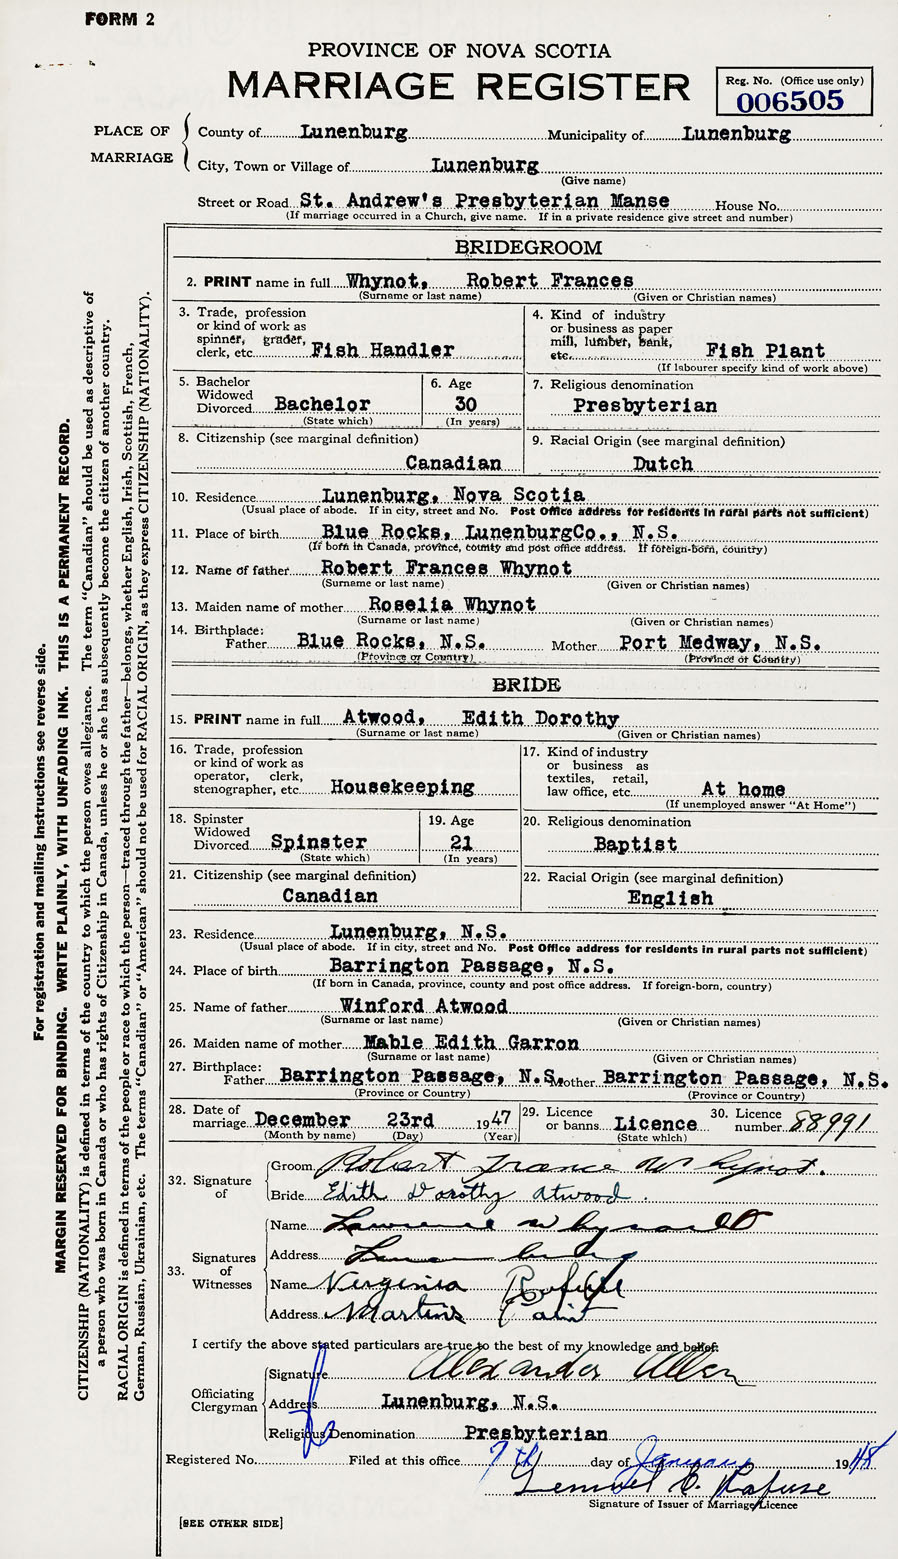 FORM 2
PROVINCE OF NOVA SCOTIA
MARRIAGE REGISTER
Reg. No. (Office use only)
006505
PLACE OF MARRIAGE
County of Lunenburg Municipality of Lunenburg
City, Town or Village of Lunenburg
(Give name)
Street or Road St. Andrew's Presbyterian Manse House No.
(If marriage occurred in a Church, give name. If in a private residence give street and number)
BRIDEGROOM
2. PRINT name in full Whynot, Robert Frances
(Surname or last name) (Given or Christian names)
3. Trade, profession
or kind of work as
spinner, grader,
clerk, etc. Fish Handler
4. Kind of industry
or business as paper
mill, lumber, bank,
etc. Fish Plant
(If labourer specify kind of work above)
5. Bachelor
Widowed
Divorced Bachelor
(State which)
6. Age
30
(In years)
7. Religious denomination
Presbyterian
8. Citizenship (see marginal definition)
Canadian
9. Racial Origin (see marginal definition)
Dutch
10. Residence Lunenburg, Nova Scotia
(Usual place of abode. If in city, street and No. Post Office address for residents in rural parts not sufficient)
11. Place of birth Blue Rocks, LunenburgCo., N.S.
(If born in Canada, province, county and post office address. If foreign-born, country)
12. Name of father Robert Frances Whynot
(Surname or last name) (Given or Christian names)
13. Maiden name of mother Roselia Whynot
(Surname or last name) (Given or Christian names)
14. Birthplace:
Father Blue Rocks, N.S. Mother Port Medway, N.S.
(Province or Country) (Province or Country)
BRIDE
15. PRINT name in full Atwood, Edith Dorothy
(Surname or last name) (Given or Christian names)
16. Trade, profession
or kind of work as
operator, clerk,
stenographer, etc. Housekeeping
17. Kind of industry
or business as
textiles, retail,
law office, etc. At home
(If unemployed answer "At Home")
18. Spinster
Widowed
Divorced Spinster
(State which)
19. Age
21
(In years)
20. Religious denomination
Baptist
21. Citizenship (see marginal definition)
Canadian
22. Racial Origin (see marginal definition)
English
23. Residence Lunenburg, N.S.
(Usual place of abode. If in city, street and No. Post Office address for residents in rural parts not sufficient)
24. Place of birth Barrington Passage, N.S.
(If born in Canada, province, county and post office address. If foreign-born, country)
25. Name of father Winford Atwood
(Surname or last name) (Given or Christian names)
26. Maiden name of mother Mable Edith Garron
(Surname or last name) (Given or Christian names)
27. Birthplace:
Father Barrington Passage, N.S. Mother Barrington Passage, N.S.
(Province or Country) (Province or Country)
28. Date of
marriage December 23rd 1947
(Month by name) (Day) (Year)
29. Licence
or banns Licence
(State which)
30. Licence
number 88991
32. Signature of
Groom Robert France Whynot.
Bride Edith Dorothy Atwood.
33. Signatures of Witnesses
Name Lawrence Whynacht
Address Lunenburg
Name Verginia Rafuse
Address Martins
I certify the above stated particulars are true to the best of my knowledge and belief:
Officiating Clergyman
Signature Alexander Allen
Address Lunenburg, N.S.
Religious Denomination Presbyterian
Registered No. Filed at this office 7th day of January 1948
Lemuel C. Rafuse
Signature of Issuer of Marriage Licence
[SEE OTHER SIDE]
For registration and mailing instructions see reverse side.
MARGIN RESERVED FOR BINDING. WRITE PLAINLY, WITH UNFADING INK. THIS IS A PERMANENT RECORD.
CITIZENSHIP (NATIONALITY) is defined in terms of the country to which the person owes allegiance. The term "Canadian" should be used as descriptive of
a person who was born in Canada or who has rights of Citizenship in Canada, unless he or she has subsequently become the citizen of another country.
RACIAL ORIGIN is defined in terms of the people or race to which the person—traced through the father—belongs, whether English, Irish, Scottish, French,
German, Russian, Ukrainian, etc. The terms "Canadian" or "American" should not be used for RACIAL ORIGIN, as they express CITIZENSHIP (NATIONALITY).